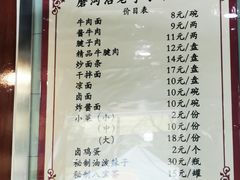 价目表
牛肉面 8元/碗
酱牛肉 9元/两
腱子肉 7元/两
精品牛腱肉 12元/盘
炒面条 14元/盘
干拌面 12元/盘
凉面 12元/盘
卤面 12元/碗
炸酱面 12元/碗
小菜(小) 2元/份
(中) 10元/份
(大) 18元/份
卤鸡蛋 2元/个
秘制油泼辣子 30元/瓶
秘制八宝茶 15元/罐